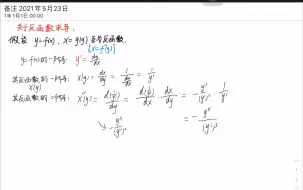 备注 2021年5月23日
1月1日 00:00
关于反函数求导:
假设 y=f(x), x=φ(y)互为反函数
y=f(x)的一阶导: y'=dy/dx
其反函数的一阶导: x'(y)=dx/dy=1/(dy/dx)=1/y'
x(y)
其反函数的二阶导: x''(y)=d(1/y')/dy=d(1/y')/dx·dx/dy=-y''/(y')²·1/y'
↘-y''/(y')². =-y''/(y')³